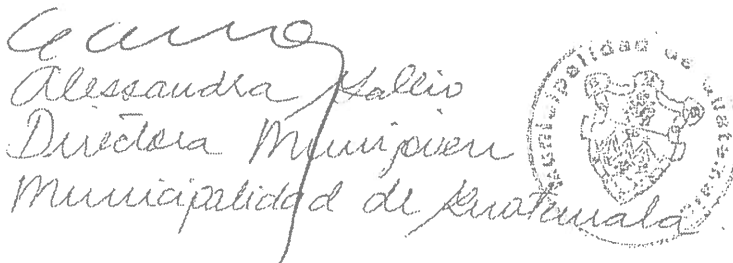 Alessandra Gallio
Directora Munijoven
Municipalidad de Guatemala
Municipalidad de Guatemala